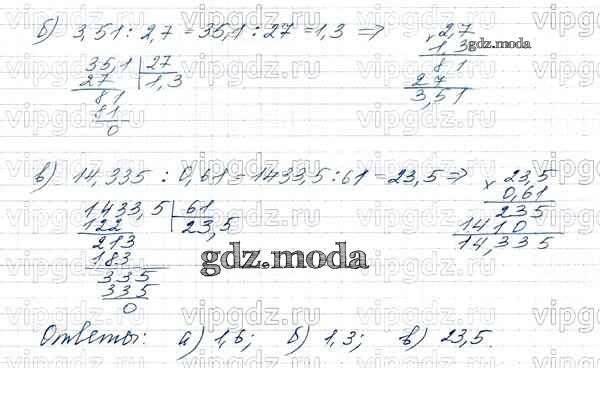 б) 3,51 : 2,7 = 35,1 : 27 = 1,3 ⇒
× 2,7
1,3
81
27
3,51
35,1 | 27
27 | 1,3
81
81
0
в) 14,335 : 0,61 = 1433,5 : 61 = 23,5 ⇒
× 23,5
0,61
235
1410
14,335
1433,5 | 61
122 | 23,5
213
183
335
335
0
Ответы: а) 1,6; б) 1,3; в) 23,5.
gdz.moda
gdz.moda
vipgdz.ru